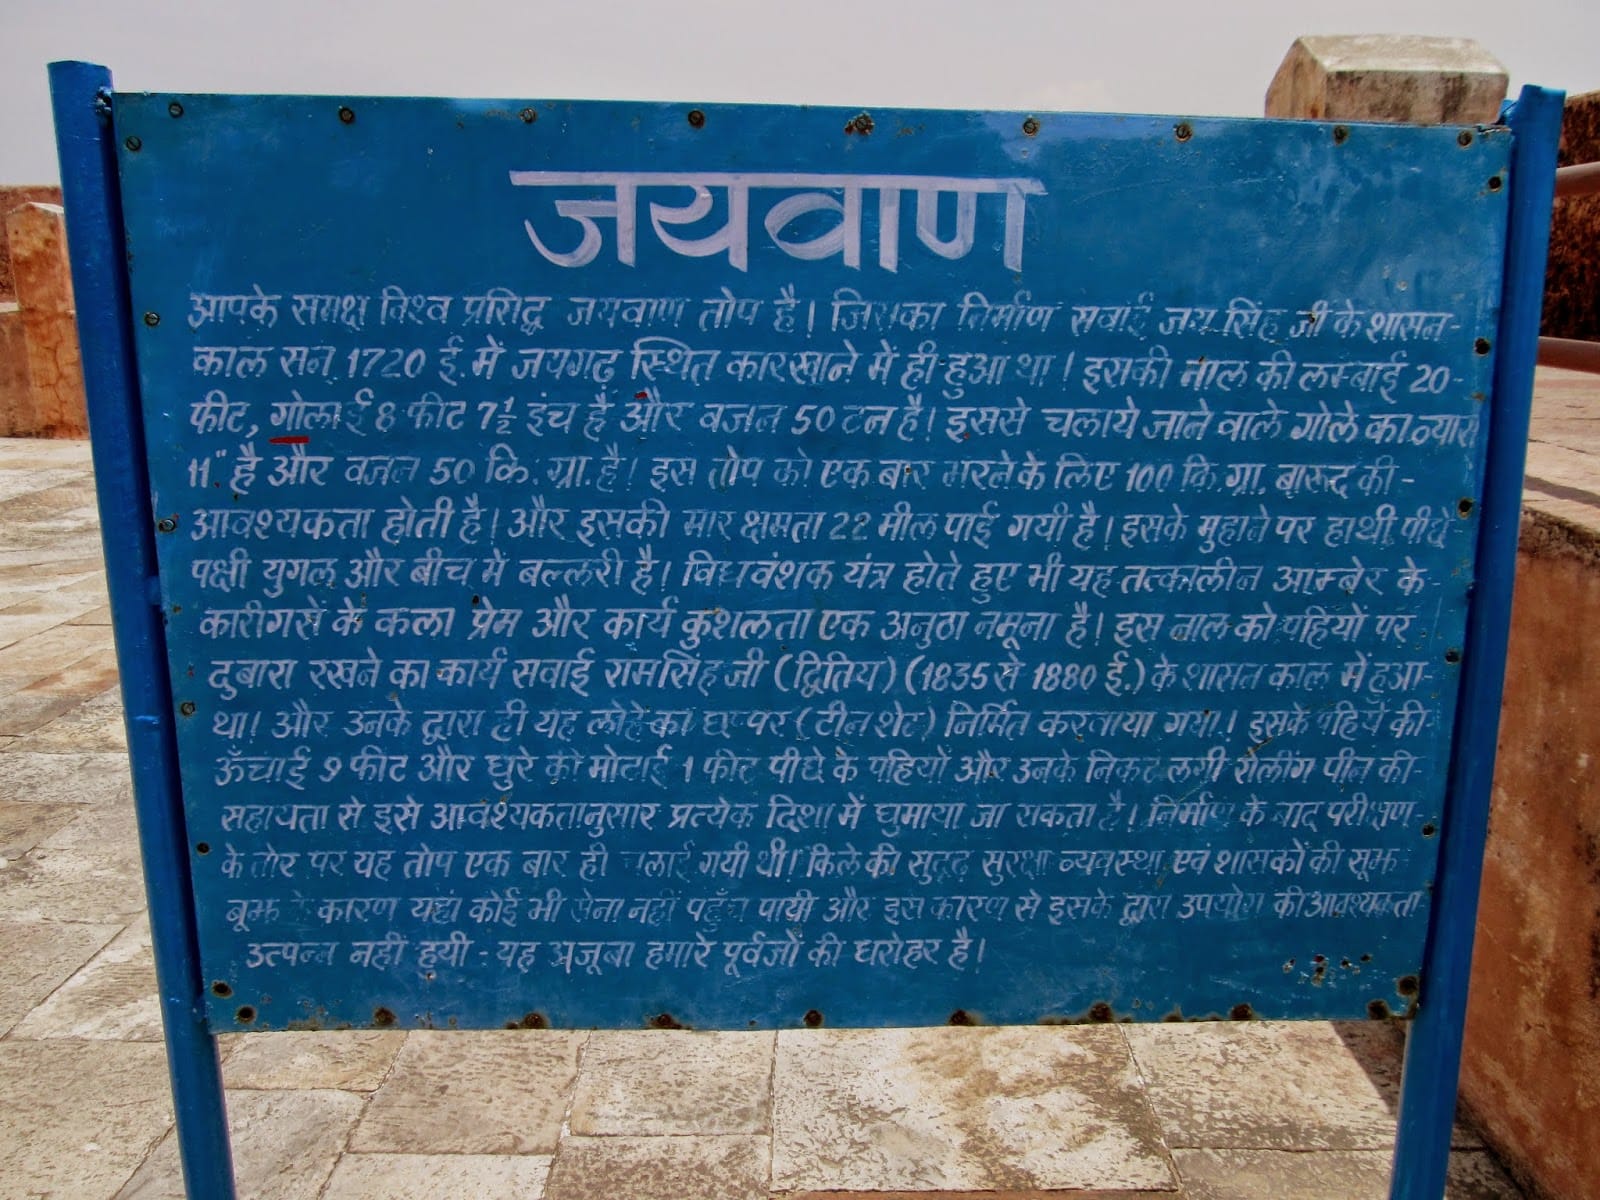 जयवाण
आपके समक्ष विश्व प्रसिद्ध जयवाण तोप है। जिसका निर्माण सवाई जय सिंह जी के शासन-
काल सन् 1720 ई. में जयगढ़ स्थित कारखाने में ही हुआ था। इसकी नाल की लम्बाई 20-
फीट, गोलाई 8 फीट 7½ इंच है और वजन 50 टन है। इससे चलाये जाने वाले गोले का व्यास
11" है और वजन 50 कि. ग्रा. है। इस तोप को एक बार भरने के लिए 100 कि. ग्रा. बारूद की-
आवश्यकता होती है। और इसकी मार क्षमता 22 मील पाई गयी है। इसके मुहाने पर हाथी पीछे
पक्षी युगल और बीच में बल्लरी है। विधवंशक यंत्र होते हुए भी यह तत्कालीन आम्बेर के-
कारीगरों के कला प्रेम और कार्य कुशलता एक अनुठा नमूना है। इस नाल को पहियों पर
दुबारा रखने का कार्य सवाई रामसिंह जी (द्वितिय) (1835 से 1880 ई.) के शासन काल में हुआ-
था। और उनके द्वारा ही यह लोहे का छप्पर (टीन शेट) निर्मित करवाया गया। इसके पहिये की-
ऊँचाई 9 फीट और धुरे की मोटाई 1 फीट पीछे के पहियों और उनके निकट लगी रोलींग पीन की-
सहायता से इसे आवश्यकतानुसार प्रत्येक दिशा में घुमाया जा सकता है। निर्माण के बाद परीक्षण-
के तोर पर यह तोप एक बार ही चलाई गयी थी। किले की सुदृढ़ सुरक्षा व्यवस्था एवं शासकों की सूझ-
बूझ के कारण यहां कोई भी सेना नहीं पहुँच पायी और इस कारण से इसके द्वारा उपयोग की आवश्यकता
उत्पन्न नहीं हुयी - यह अजूबा हमारे पूर्वजों की धरोहर है।